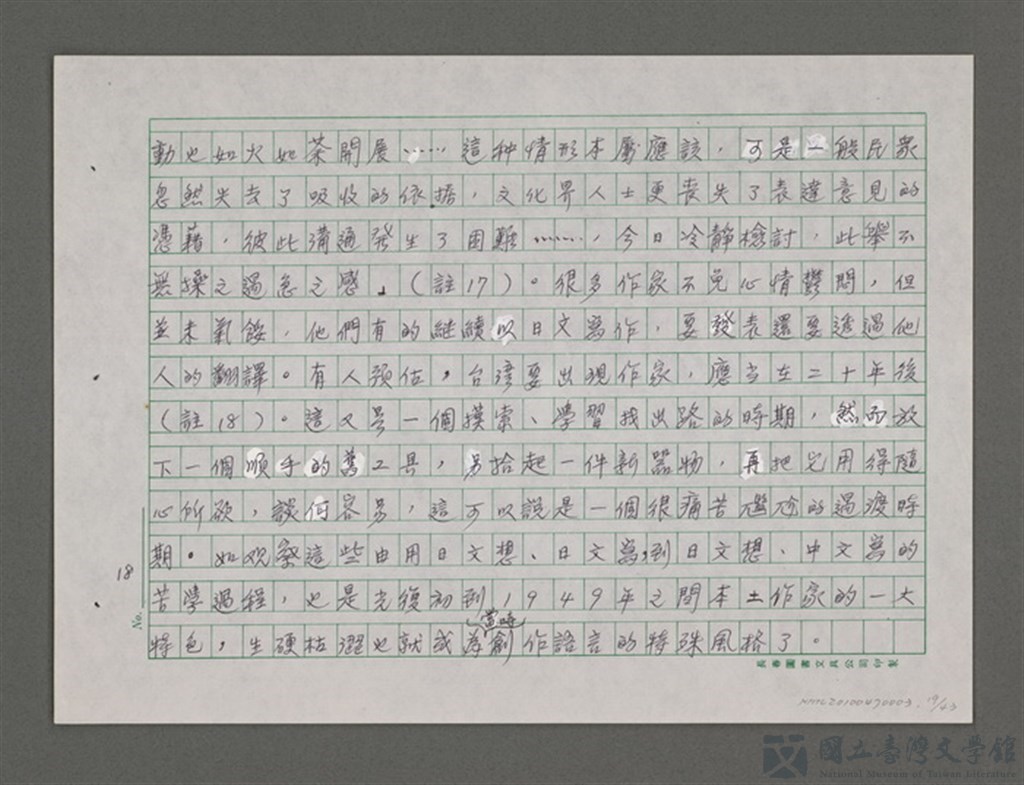 動也如火如荼開展……這种情形本屬應該，可是一般民眾
忽然失去了吸收的依據，文化界人士更喪失了表達意見的
憑藉，彼此溝通發生了困難……，今日冷靜檢討，此舉不
無操之過急之感」（註17）。很多作家不免心情鬱悶，但
並未氣餒，他們有的継續以日文寫作，要發表還要透過他
人的翻譯。有人預估，台湾要出現作家，應当在二十年後
（註18）。這又是一個摸索、學習找出路的時期，然而放
下一個順手的舊工具，另拾起一件新器物，再把它用得隨
心所欲，談何容易，這可以說是一個很痛苦尷尬的過渡時
期。如观察這些由用日文想、日文寫，到日文想、中文寫的
苦學過程，也是光復初到1949年之間本土作家的一大
特色，生硬枯澀也就成為當時創作語言的特殊風格了。
No. 18
長春圖書文具公司印製
NMTL20100470003. 19/43
國立臺灣文學館
National Museum of Taiwan Literature